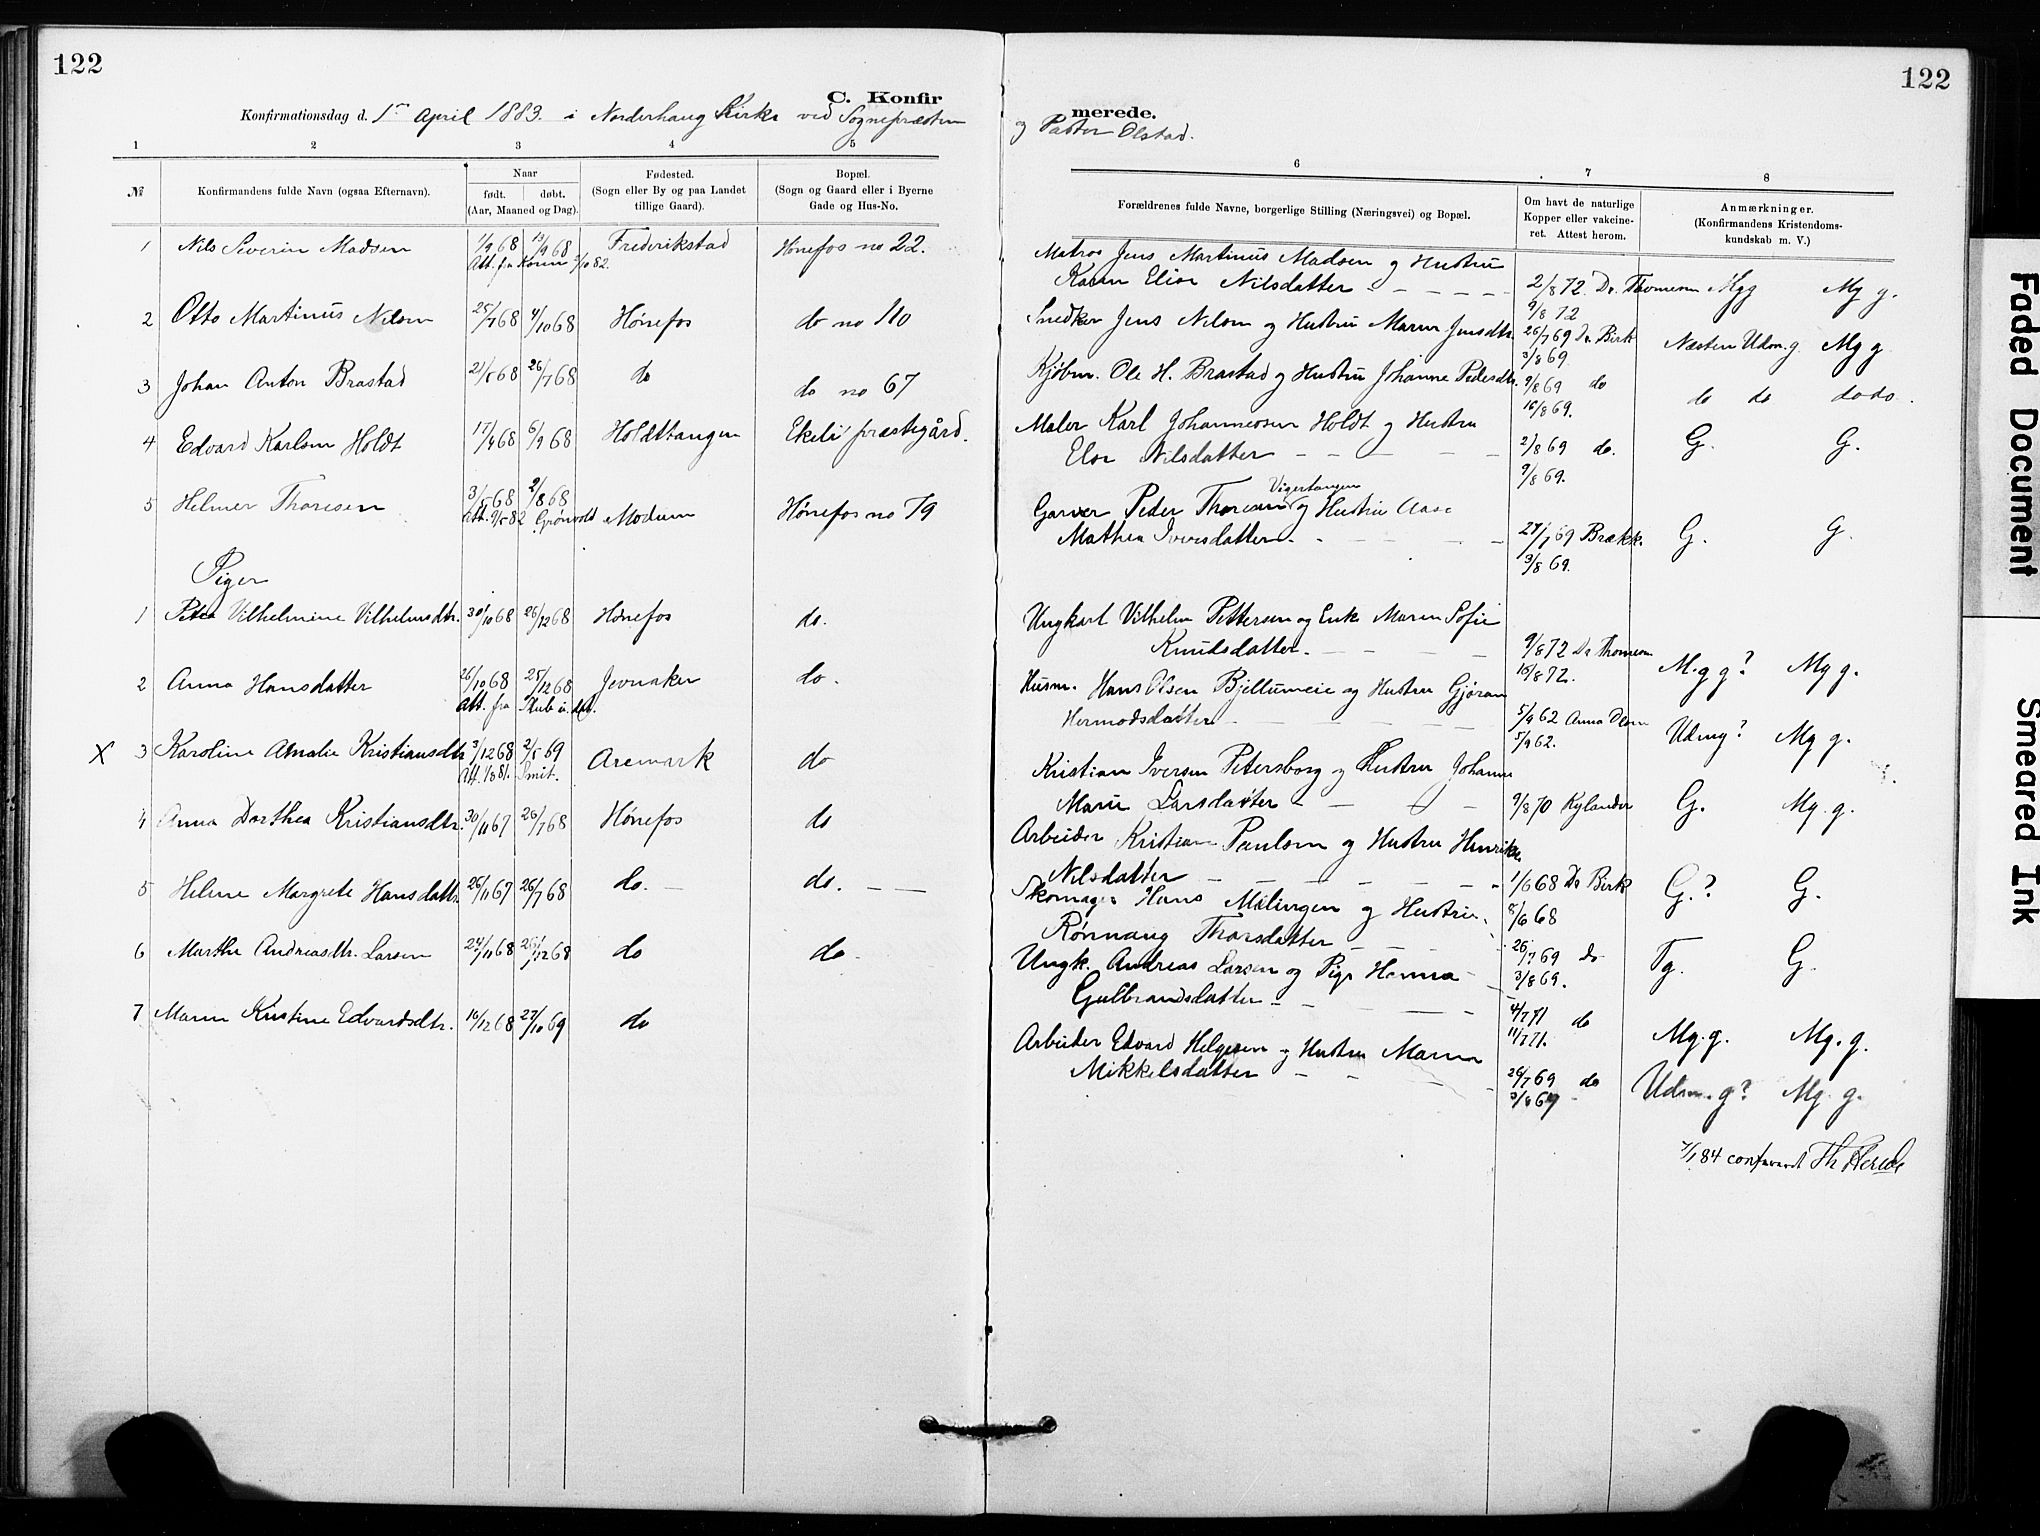 122
122
C. Konfir
merede.
Konfirmationsdag d. 1ste April 1883. i Norderhaug Kirke ved Sognepræsten
og Pastor Olstad.
1 2 3 4 5
6 7 8
№
Konfirmandens fulde Navn (ogsaa Efternavn).
Naar
født. døbt.
(Aar, Maaned og Dag).
Fødested.
(Sogn eller By og paa Landet
tillige Gaard).
Bopæl.
(Sogn og Gaard eller i Byerne
Gade og Hus-No.
Forældrenes fulde Navne, borgerlige Stilling (Næringsvei) og Bopæl.
Om havt de naturlige
Kopper eller vakcine-
ret. Attest herom.
Anmærkninger.
(Konfirmandens Kristendoms-
kundskab m. V.)
1 Nils Severin Madsen 1/9 68 13/9 68 Frederikstad Hønefos no 22.
Att. fra 3/10 82.
Matros Jens Martinus Madsen og Hustru
Karen Elise Nilsdatter - - - - 2/8 72. Dr. Thomesen Mgg Mg g.
9/8 72
2 Otto Martinus Nilsen 25/7 68 4/10 68 Hønefos do no 110
Snedker Jens Nilsen og Hustru Maren Jensdtr. 26/7 69 Dr. Birk Næsten Udm. g. Mg g
3/8 69.
3 Johan Anton Brastad 21/5 68 26/7 68 do do no 67
Kjøbm. Ole H. Brastad og Hustru Johanne Pedersdtr. 9/8 69 do do do do do.
16/8 69.
4 Edvard Karlsen Holdt 17/4 68 6/9 68 Holdttangen Ekeli præstegård.
Maler Karl Johannesen Holdt og Hustru
Elor Nilsdatter - - - - - 2/8 69 do. G. G.
9/8 69.
5 Helmer Thoresen 3/5 68 2/8 68
Att. 9/5 82 Grønvold Modum Hønefos no 79
Vigertangen
Garver Peder Thoresen og Hustru Aase
Mathea Iversdatter - - - - 27/7 69 Brækk. G. G.
3/8 69.
Piger
1 Petra Vilhelmine Vilhelmsdtr. 30/10 68 26/12 68 Hønefos do.
Ungkarl Vilhelm Pettersen og Enke Maren Sofie
Knudsdatter. - - - - 9/8 72 Dr Thomesen M.g g? Mg g.
16/8 72.
2 Anna Hansdatter 26/10 68 25/12 68 Jevnaker do.
Att. fra
Husm. Hans Olsen Bjellumeie og Hustru Gjøran
Hermodsdatter - - - - 5/9 62 Anna Udmg? Mg g.
5/9 62.
X 3 Karoline Amalie Kristiansdtr 3/12 68 2/5 69 Aremark do
Att. 1881. Smit.
Kristian Iversen Petersborg og Hustru Johanne
Marie Larsdatter - - - - 9/8 70 Rylander G. Mg. g.
4 Anna Dorthea Kristiansdtr. 30/11 67 26/7 68 Hønefos do
Arbeider Kristian Paulsen og Hustru Henrikke
Nilsdatter - - - - - 1/6 68 Dr Birk G.? G.
8/6 68
5 Helene Margrete Hansdattr. 26/11 67 26/7 68 do. - do. - -
Skomager Hans Mælingen og Hustru
Rønnaug Thorsdatter - - - 26/7 69 do Tg. G.
3/8 69.
6 Marthe Andreasdtr. Larsen 24/11 68 26/12 68 do do.
Ungk. Andreas Larsen og Pige Hanna -
Gulbrandsdatter - - - - 4/7 71 do Mg. g. Mg. g.
11/7 71.
7 Maren Kristine Edvardsdtr. 16/12 68 27/10 69 do
Arbeider Edvard Helgesen og Hustru Maren
Mikkelsdatter - - - - 26/7 69 do Udm. g? Mg. g.
3/8 69
7/1 84 confereret Th
Faded Document
Smeared Ink